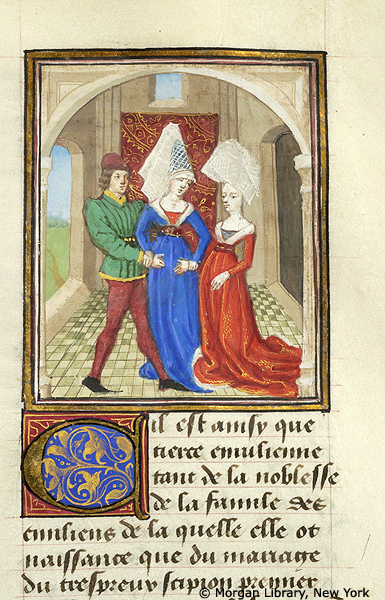 Qu il est ainsy que
tierce emulienne
tant de la noblesse
de la famile des
emiliens de la quelle elle ot
naissance que du mariage
du trespreux scipion premier
© Morgan Library, New York